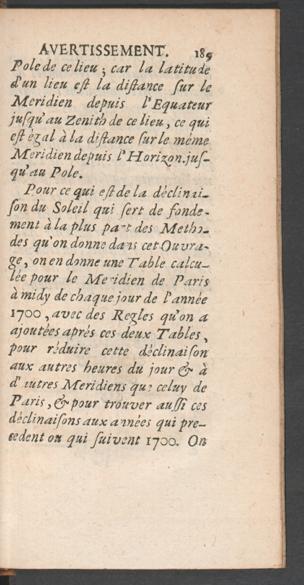 AVERTISSEMENT. 189
Pole de ce lieu ; car la latitude
d'un lieu est la distance sur le
Meridien depuis l'Equateur
jusqu'au Zenith de ce lieu, ce qui
est égal à la distance sur le même
Meridien depuis l'Horizon jus-
qu'au Pole.
Pour ce qui est de la déclinai-
son du Soleil qui sert de fonde-
ment à la plus part des Metho-
des qu'on donne dans cet Ouvra-
ge, on en donne une Table calcu-
lée pour le Meridien de Paris
à midy de chaque jour de l'année
1700, avec des Regles qu'on a
ajoutées après ces deux Tables,
pour réduire cette déclinaison
aux autres heures du jour & à
d'autres Meridiens que celuy de
Paris, & pour trouver aussi ces
déclinaisons aux années qui pre-
cedent ou qui suivent 1700. On